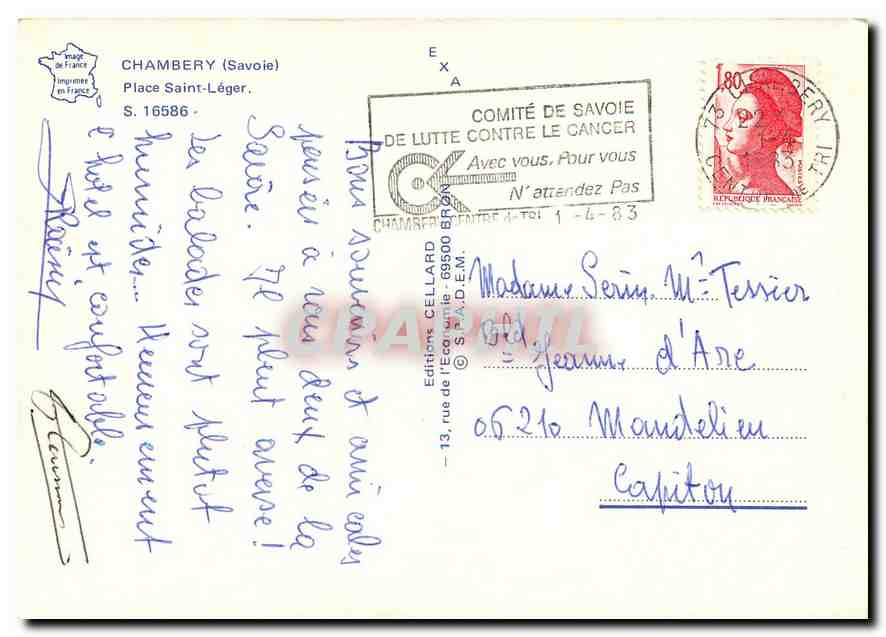 Image
de France
Imprimée
en France
CHAMBERY (Savoie)
Place Saint-Léger.
S. 16586 -
E
X
A
COMITÉ DE SAVOIE
DE LUTTE CONTRE LE CANCER
Avec vous, Pour vous
N'attendez Pas
CHAMBERY CENTRE de TRI 1 -4-83
1,80
REPUBLIQUE FRANÇAISE
73 CHAMBERY
22
CENTRE DE TRI
Bons souvenirs et amicales
pensées à vous deux de la
Savoie. Il pleut averse!
Les balades sont plutot
humides... Heureusement
l'hotel est confortable.
Editions CELLARD
— 13, rue de l'Economie - 69500 BRON
© S.P.A.D.E.M.
Madame Serin. Mme Tessier
Bld. Jeanne d'Arc
06210 Mandelieu
Capitou
CPAPHIL